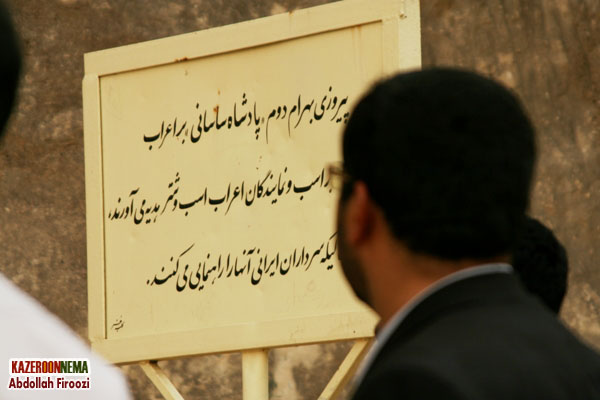 پیروزی بهرام دوم، پادشاه ساسانی، بر اعراب
اسب و نمایندگان اعراب اسب و شتر هدیه می آورند،
سرداران ایرانی آنها را راهنمایی می کنند.
KAZEROONNEMA
Abdollah Firoozi